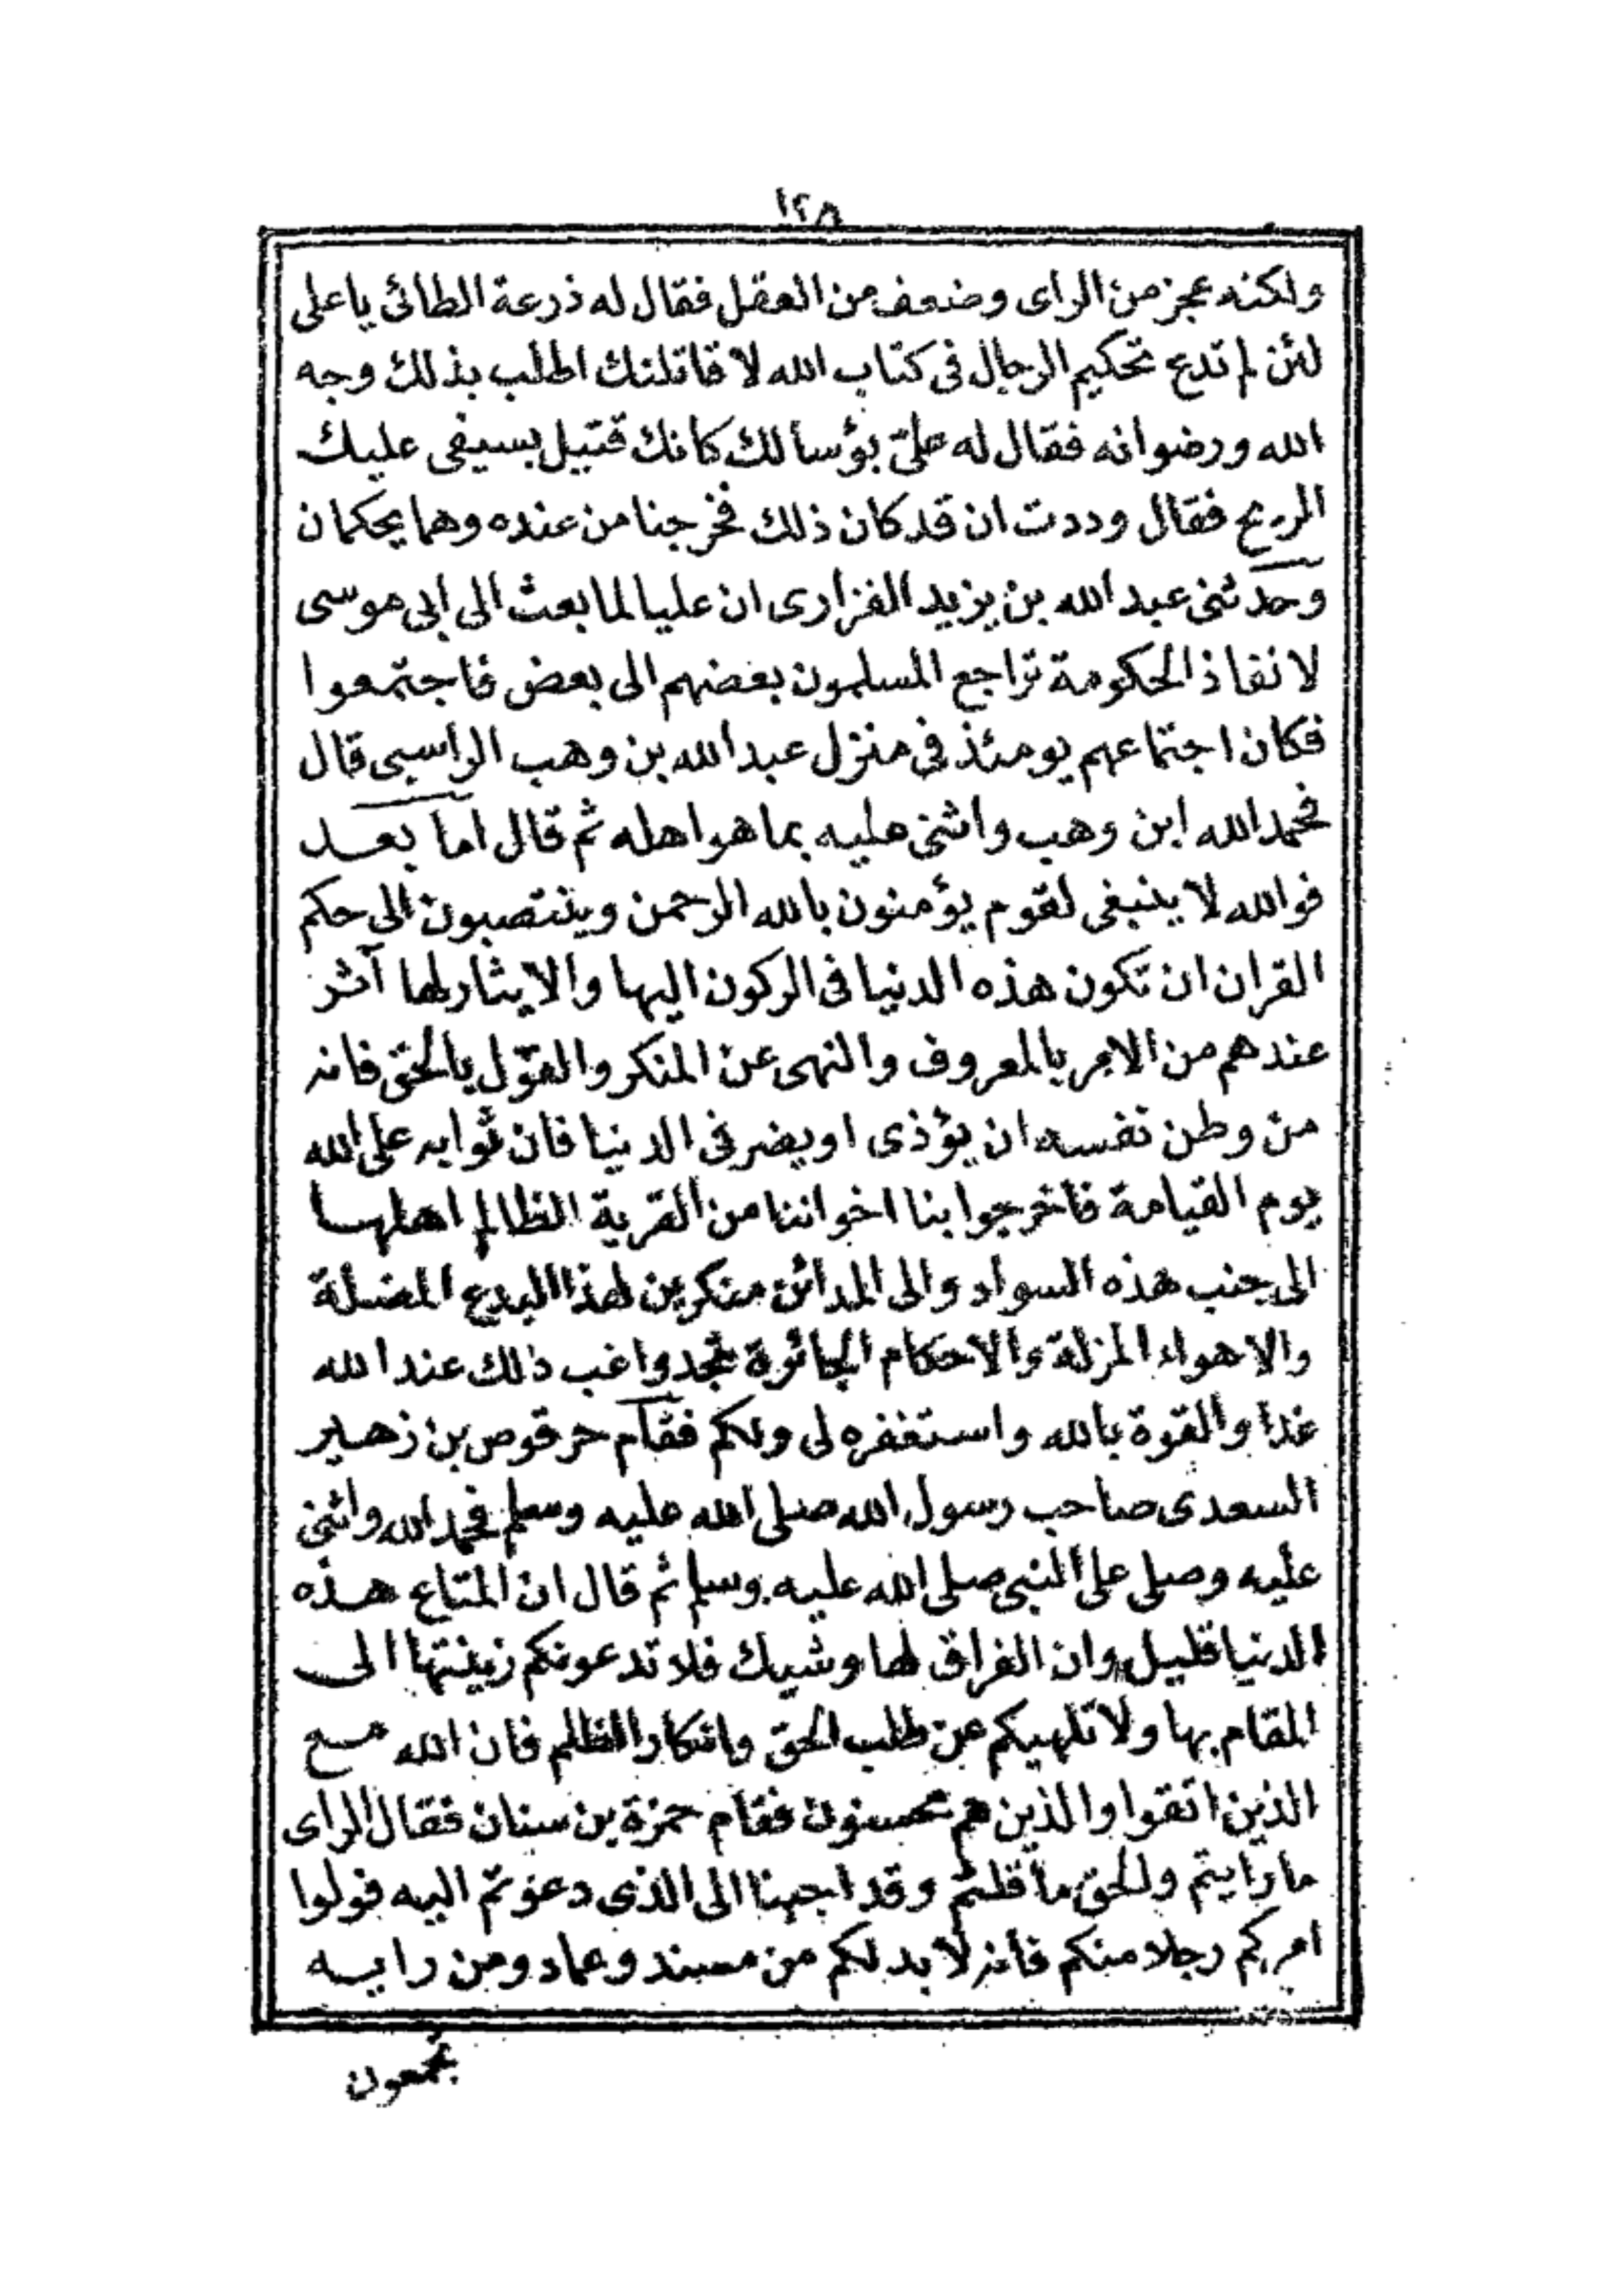 ١٢٨
ولكنه عجز من الراى وضعف من العقل فقال له ذرعة الطائى ياعلى
لئن لم تدع تحكيم الرجال فى كتاب الله لاقاتلنك اطلب بذلك وجه
الله ورضوانه فقال له علىّ بؤسا لك كانك قتيل بسيفى عليك
الريح فقال وددت ان قد كان ذلك فخرجنا من عنده وهما يحكمان
وحدثنى عبد الله بن يزيد الفزارى ان عليا لما بعث الى ابى موسى
لانفاذ الحكومة تراجع المسلمون بعضهم الى بعض فاجتمعوا
فكان اجتماعهم يومئذ فى منزل عبد الله بن وهب الراسبى قال
فحمد الله ابن وهب واثنى عليه بما هو اهله ثم قال اما بعد
فوالله لا ينبغى لقوم يؤمنون بالله الرحمن وينتصبون الى حكم
القران ان تكون هذه الدنيا فى الركون اليها والايثار لها آثر
عندهم من الامر بالمعروف والنهى عن المنكر والقول بالحق فانه
من وطن نفسه ان يؤذى او يضر فى الدنيا فان ثوابه على الله
يوم القيامة فاخرجوا بنا اخواننا من القرية الظالم اهلها
الى جنب هذه السواد والى المدائن منكرين لهذا البدع المضلة
والاهواء المزلة والاحكام الجائرة تجدوا غب ذلك عند الله
غدا والقوة بالله واستغفره لى ولكم فقام حرقوص بن زهير
السعدى صاحب رسول الله صلى الله عليه وسلم فحمد الله واثنى
عليه وصلى على النبى صلى الله عليه وسلم ثم قال ان المتاع هذه
الدنيا قليل وان الفراق لها وشيك فلا تدعونكم زينتها الى
المقام بها ولا تلهيكم عن طلب الحق وانكار الظلم فان الله مع
الذين اتقوا والذين هم محسنون فقام حمزة بن سنان فقال الراى
ما رايتم والحق ما قلتم وقد اجبنا الى الذى دعوتم اليه فولوا
امركم رجلا منكم فانه لا بد لكم من مسند وعماد ومن رايه
تجمعون